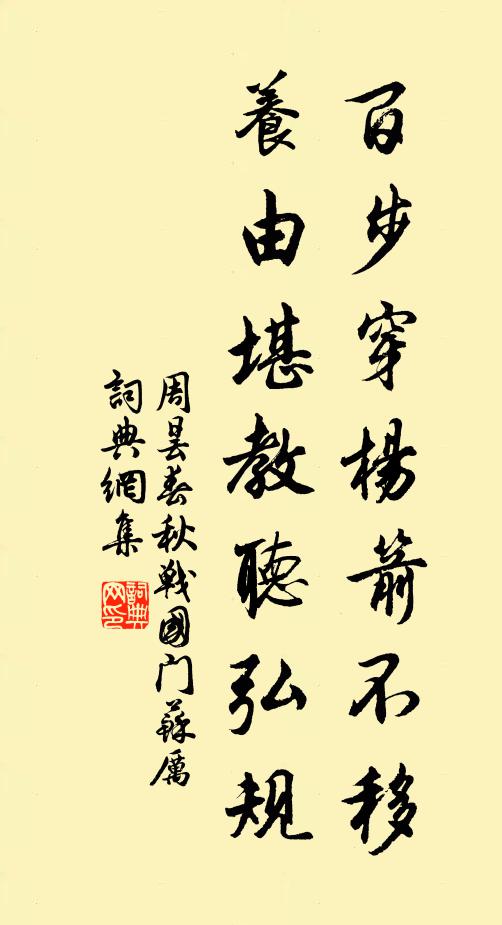 百步穿楊箭不移
養由堪教聽弘規
周昙春秋戰國门蘇厲
詞典網集
詞典
网印